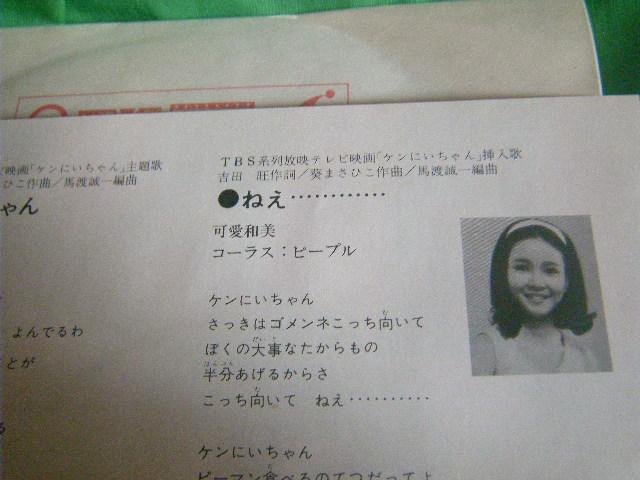 映画「ケンにいちゃん」主題歌
ひこ作曲／馬渡誠一編曲
ゃん
よんでるわ
とが
る
TBS系列放映テレビ映画「ケンにいちゃん」挿入歌
吉田 旺作詞／葵まさひこ作曲／馬渡誠一編曲
●ねえ…………
可愛和美
コーラス：ピープル
ケンにいちゃん
さっきはゴメンネこっち向いて
ぼくの大事なたからもの
半分あげるからさ
こっち向いて ねえ…………
ケンにいちゃん
ピーマン食べるのてつだってよ